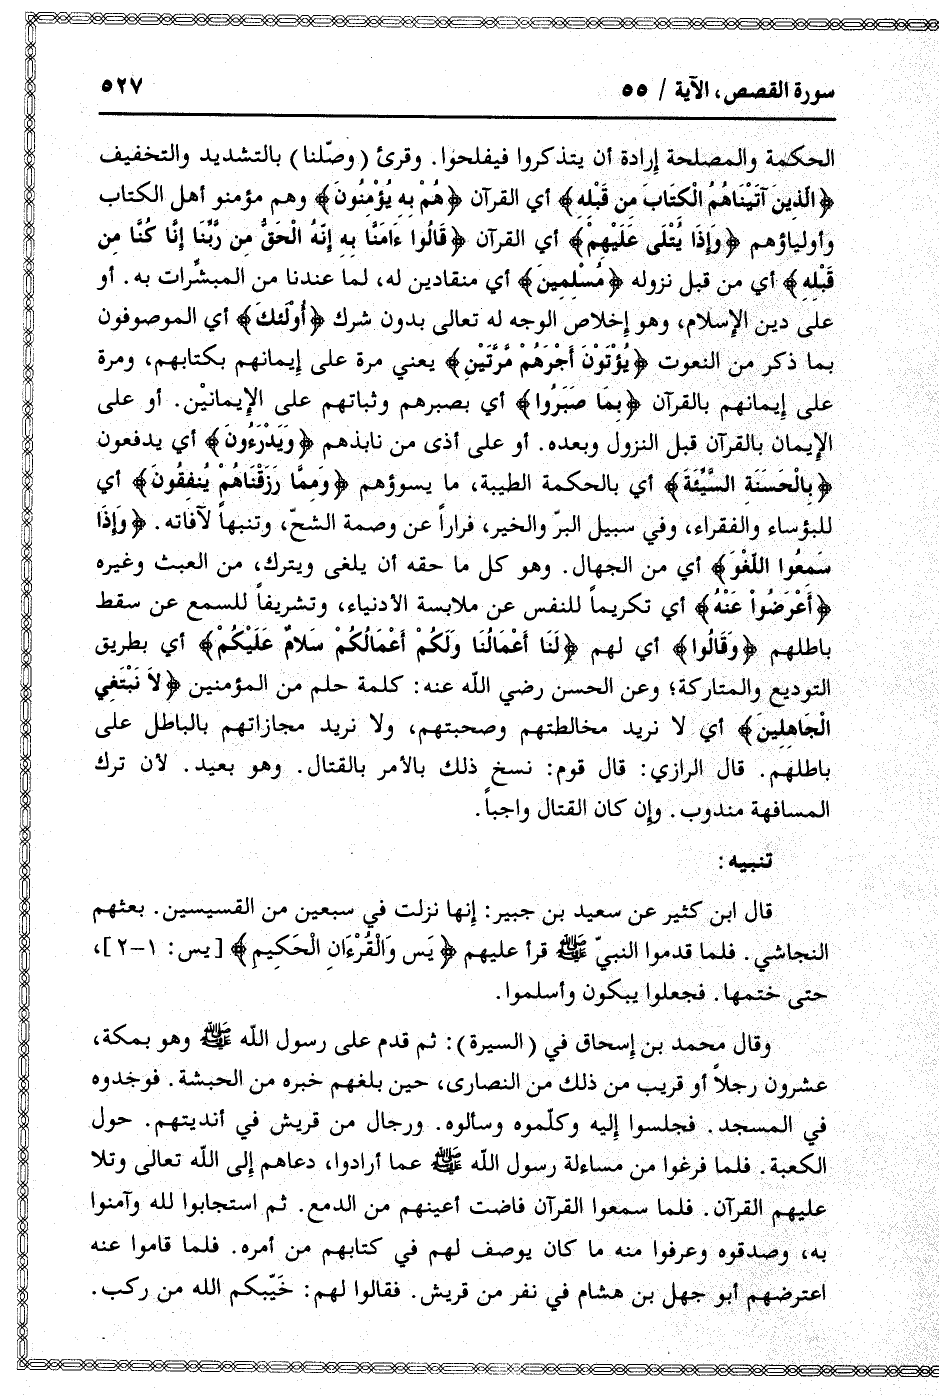 سورة القصص، الآية / ٥٥
٥٢٧
الحكمة والمصلحة إرادة أن يتذكروا فيفلحوا. وقرئ (وصّلنا) بالتشديد والتخفيف
﴿الَّذِينَ آتَيْنَاهُمُ الْكِتَابَ مِن قَبْلِهِ﴾ أي القرآن ﴿هُمْ بِهِ يُؤْمِنُونَ﴾ وهم مؤمنو أهل الكتاب
وأولياؤهم ﴿وَإِذَا يُتْلَى عَلَيْهِمْ﴾ أي القرآن ﴿قَالُوا ءَامَنَّا بِهِ إِنَّهُ الْحَقُّ مِن رَّبِّنَا إِنَّا كُنَّا مِن
قَبْلِهِ﴾ أي من قبل نزوله ﴿مُسْلِمِينَ﴾ أي منقادين له، لما عندنا من المبشِّرات به. أو
على دين الإسلام، وهو إخلاص الوجه له تعالى بدون شرك ﴿أُولَئِكَ﴾ أي الموصوفون
بما ذكر من النعوت ﴿يُؤْتَوْنَ أَجْرَهُمْ مَّرَّتَيْنِ﴾ يعني مرة على إيمانهم بكتابهم، ومرة
على إيمانهم بالقرآن ﴿بِمَا صَبَرُوا﴾ أي بصبرهم وثباتهم على الإيمانيْن. أو على
الإيمان بالقرآن قبل النزول وبعده. أو على أذى من نابذهم ﴿وَيَدْرَءُونَ﴾ أي يدفعون
﴿بِالْحَسَنَةِ السَّيِّئَةَ﴾ أي بالحكمة الطيبة، ما يسوؤهم ﴿وَمِمَّا رَزَقْنَاهُمْ يُنفِقُونَ﴾ أي
للبؤساء والفقراء، وفي سبيل البرّ والخير، فراراً عن وصمة الشحّ، وتنبهاً لآفاته. ﴿وَإِذَا
سَمِعُوا اللَّغْوَ﴾ أي من الجهال. وهو كل ما حقه أن يلغى ويترك، من العبث وغيره
﴿أَعْرَضُواْ عَنْهُ﴾ أي تكريماً للنفس عن ملابسة الأدنياء، وتشريفاً للسمع عن سقط
باطلهم ﴿وَقَالُوا﴾ أي لهم ﴿لَنَا أَعْمَالُنَا وَلَكُمْ أَعْمَالُكُمْ سَلامٌ عَلَيْكُمْ﴾ أي بطريق
التوديع والمتاركة؛ وعن الحسن رضي اللّه عنه: كلمة حلم من المؤمنين ﴿لاَ نَبْتَغِي
الْجَاهِلِينَ﴾ أي لا نريد مخالطتهم وصحبتهم، ولا نريد مجازاتهم بالباطل على
باطلهم. قال الرازي: قال قوم: نسخ ذلك بالأمر بالقتال. وهو بعيد. لأن ترك
المسافهة مندوب. وإن كان القتال واجباً.
تنبيه:
قال ابن كثير عن سعيد بن جبير: إنها نزلت في سبعين من القسيسين. بعثهم
النجاشي. فلما قدموا النبيّ ﷺ قرأ عليهم ﴿يَس وَالْقُرْءَانِ الْحَكِيمِ﴾ [يس: ١-٢]،
حتى ختمها. فجعلوا يبكون وأسلموا.
وقال محمد بن إسحاق في (السيرة): ثم قدم على رسول اللّه ﷺ وهو بمكة،
عشرون رجلاً أو قريب من ذلك من النصارى، حين بلغهم خبره من الحبشة. فوجدوه
في المسجد. فجلسوا إليه وكلّموه وسألوه. ورجال من قريش في أنديتهم. حول
الكعبة. فلما فرغوا من مساءلة رسول اللّه ﷺ عما أرادوا، دعاهم إلى اللّه تعالى وتلا
عليهم القرآن. فلما سمعوا القرآن فاضت أعينهم من الدمع. ثم استجابوا لله وآمنوا
به، وصدقوه وعرفوا منه ما كان يوصف لهم في كتابهم من أمره. فلما قاموا عنه
اعترضهم أبو جهل بن هشام في نفر من قريش. فقالوا لهم: خَيّبكم الله من ركب.